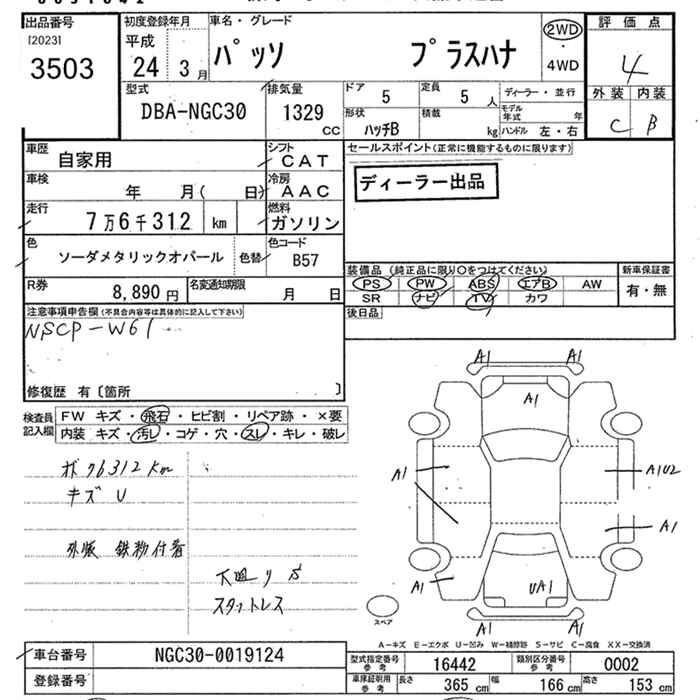 出品番号 初度登録年月 車名・グレード 評価点
[2023] 平成
3503 24 3月 パッソ プラスハナ 2WD・4WD 4
型式 排気量 ドア 定員 ディーラー・並行 外装 内装
DBA-NGC30 1329 cc 5 5人 モデル年式 年 C B
形状 積載 ハンドル 左・右
ハッチB kg
車歴 シフト セールスポイント(正常に機能するものに限ります)
自家用 CAT
車検 冷房 ディーラー出品
年 月( 日) AAC
走行 燃料
7万6千312 km ガソリン
色 色替 色コード
ソーダメタリックオパール B57
装備品 (純正品に限り○をつけてください) 新車保証書
R券 名変通知期限 PS PW ABS エアB AW 有・無
8,890円 月 日 SR ナビ TV カワ
注意事項申告欄(不具合内容等は具体的に記入して下さい) 後日品
NSCP-W61
修復歴 有〔箇所 〕
検査員記入欄 FW キズ・飛石・ヒビ割・リペア跡・×要
内装 キズ・汚レ・コゲ・穴・スレ・キレ・破レ
A1 A1
A1
76312km
キズ U
A1 A1U2
A1
外販 鉄粉付着
下廻りS
スタットレス
A1 UA1
スペア
A1 A1
A-キズ E-エクボ U-凹み W-補修跡 S-サビ C-腐食 XX-交換済
車台番号 NGC30-0019124 型式指定番号 参考 16442 類別区分番号 参考 0002
登録番号 車庫証明用 参考 長さ 365 cm 幅 166 cm 高さ 153 cm